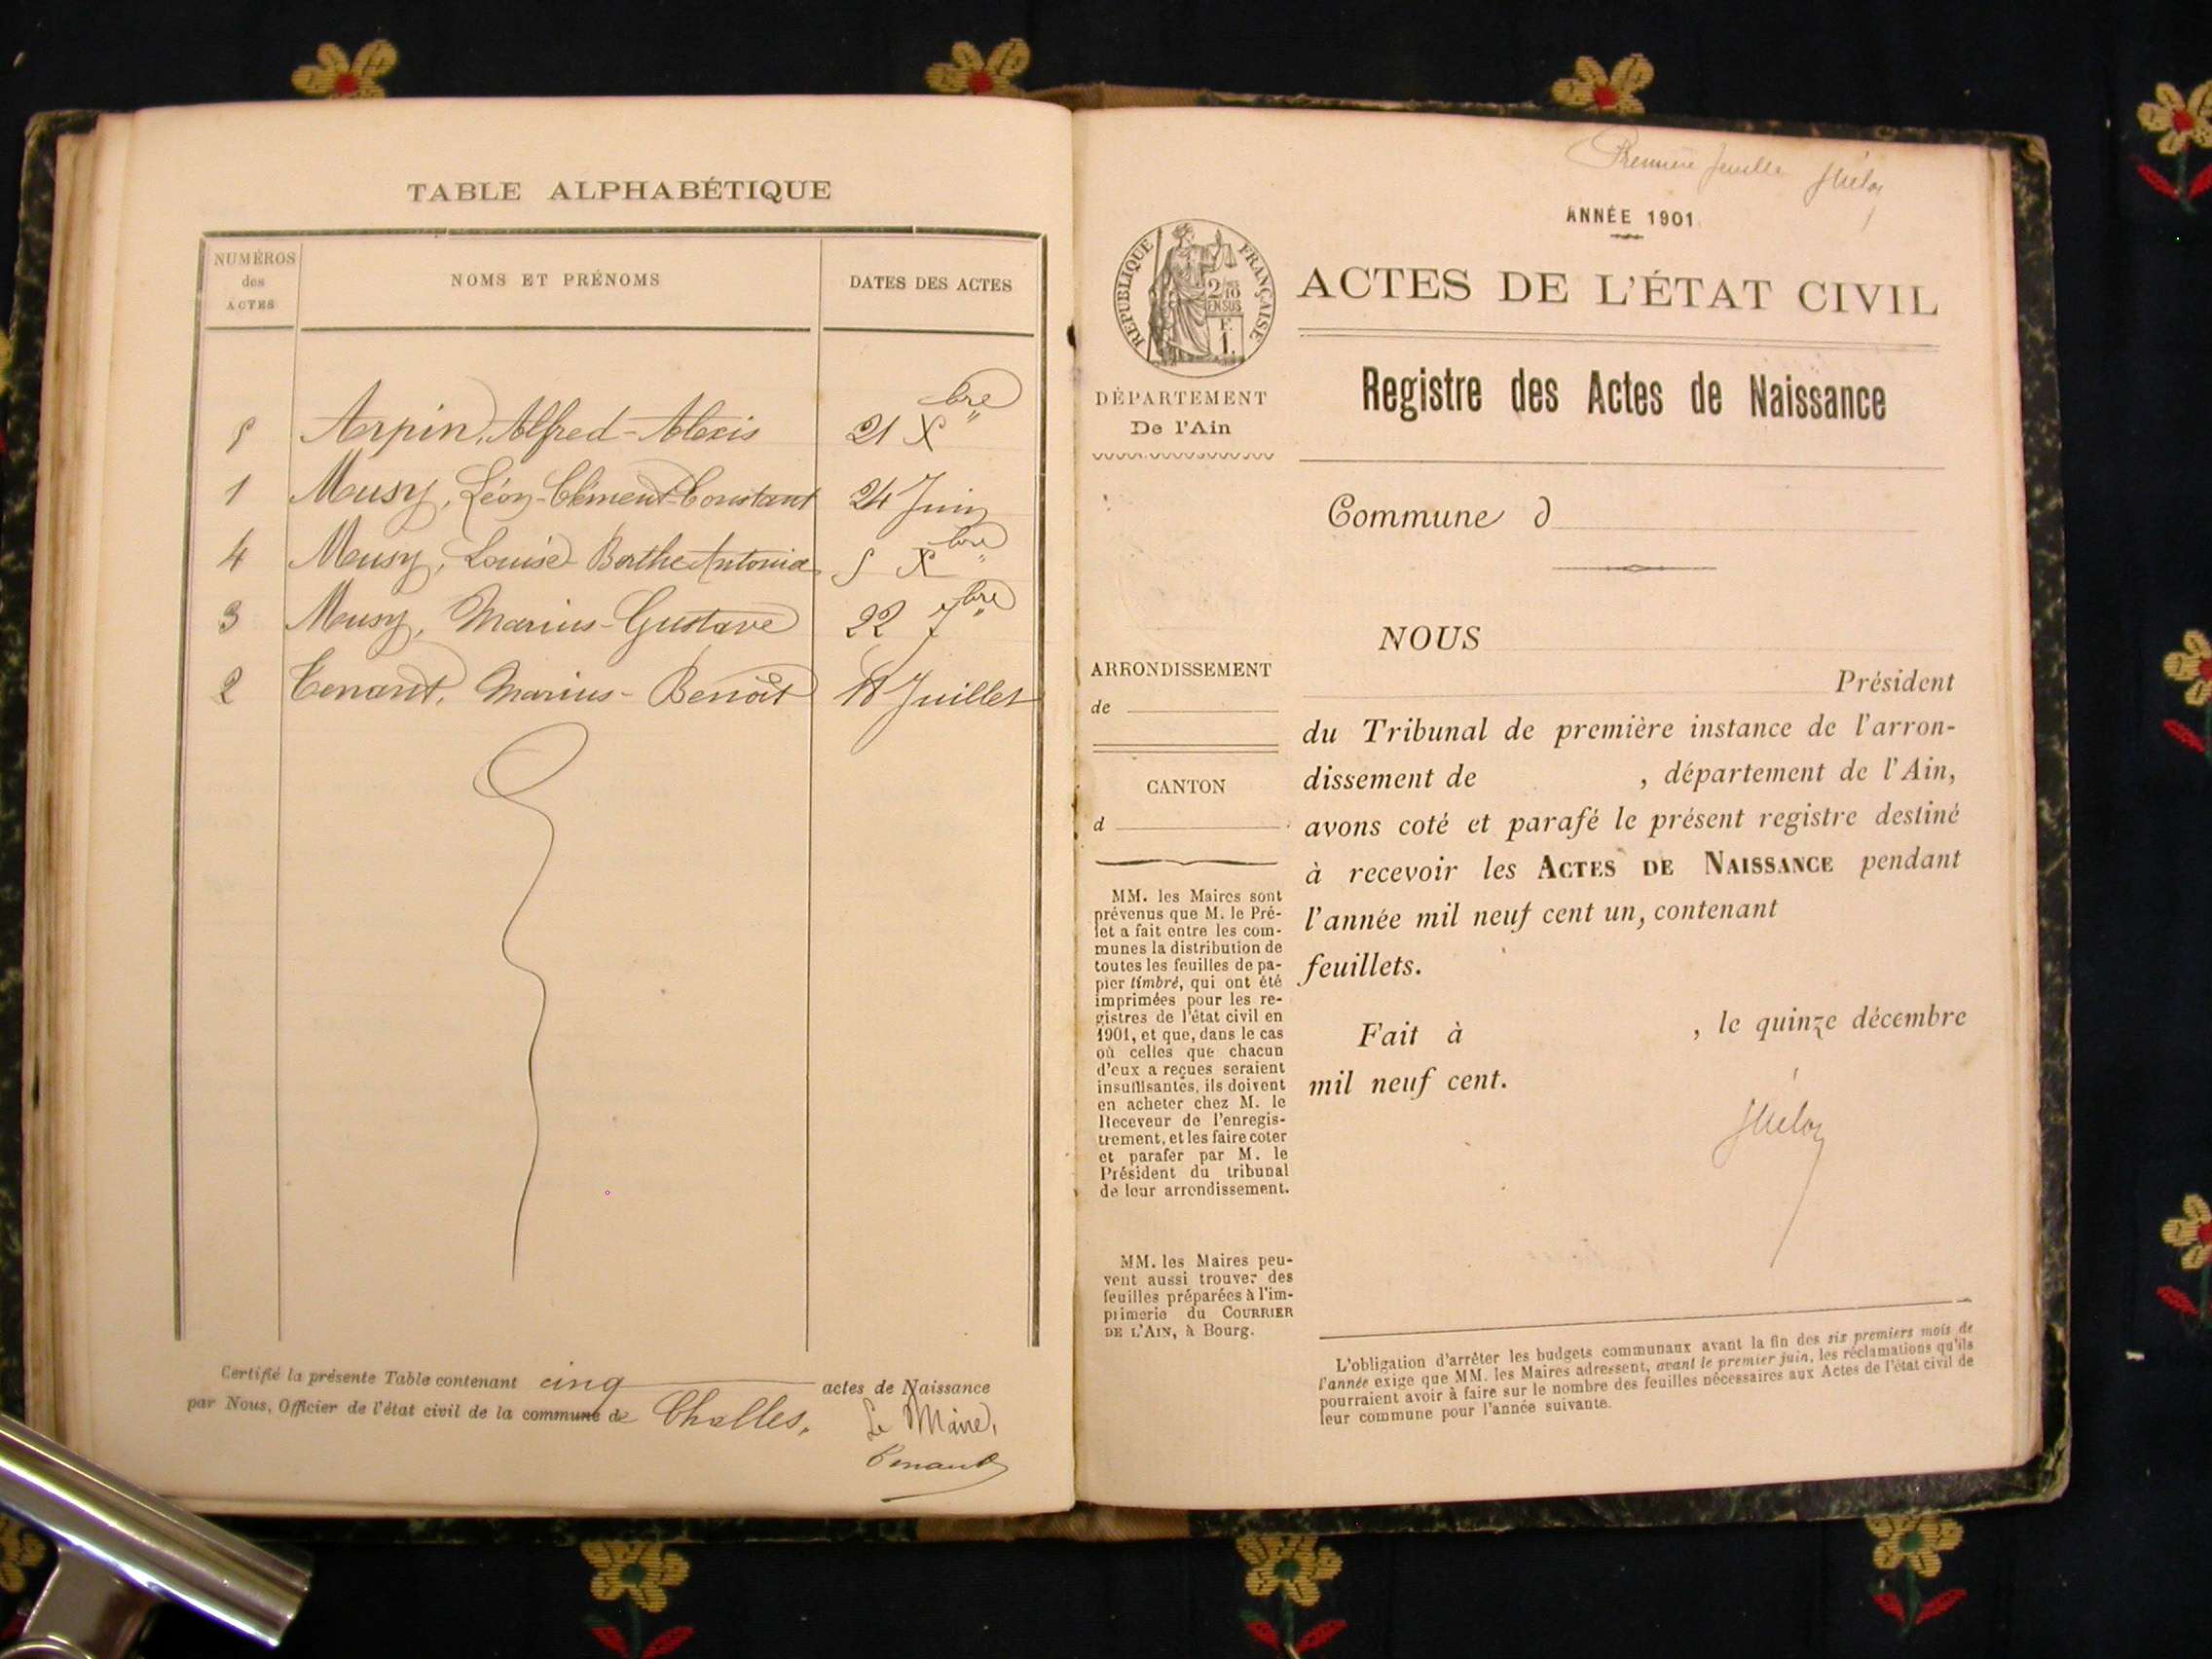 TABLE ALPHABÉTIQUE
NUMÉROS des ACTES NOMS ET PRÉNOMS DATES DES ACTES
5 Arpin, Alfred-Alexis 21 Xbre
1 Mousy, Léon-Clément-Constant 24 Juin
4 Mousy, Louise-Berthe-Antonia 5 Xbre
3 Mousy, Marius-Gustave 22 7bre
2 Tenant, Marius-Benoît 18 Juillet
Certifié la présente Table contenant cinq actes de Naissance
par Nous, Officier de l'état civil de la commune de Challes.
Le Maire,
Tenant
Première feuille
ANNÉE 1901
RÉPUBLIQUE FRANÇAISE
2/10
EN SUS
F.
1.
ACTES DE L'ÉTAT CIVIL
DÉPARTEMENT
De l'Ain
Registre des Actes de Naissance
Commune d
ARRONDISSEMENT
de
CANTON
d
MM. les Maires sont
prévenus que M. le Pré-
fet a fait entre les com-
munes la distribution de
toutes les feuilles de pa-
pier timbré, qui ont été
imprimées pour les re-
gistres de l'état civil en
1901, et que, dans le cas
où celles que chacun
d'eux a reçues seraient
insuffisantes, ils doivent
en acheter chez M. le
Receveur de l'enregis-
trement, et les faire coter
et parafer par M. le
Président du tribunal
de leur arrondissement.
MM. les Maires peu-
vent aussi trouver des
feuilles préparées à l'im-
primerie du COURRIER
DE L'AIN, à Bourg.
NOUS
Président
du Tribunal de première instance de l'arron-
dissement de , département de l'Ain,
avons coté et parafé le présent registre destiné
à recevoir les ACTES DE NAISSANCE pendant
l'année mil neuf cent un, contenant
feuillets.
Fait à , le quinze décembre
mil neuf cent.
L'obligation d'arrêter les budgets communaux avant la fin des six premiers mois de
l'année exige que MM. les Maires adressent, avant le premier juin, les réclamations qu'ils
pourraient avoir à faire sur le nombre des feuilles nécessaires aux Actes de l'état civil de
leur commune pour l'année suivante.